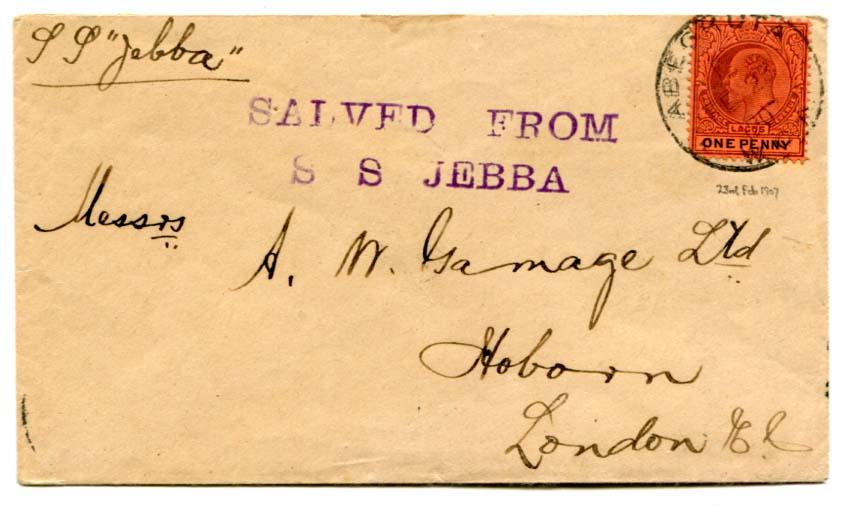 S S "Jebba"
ABEOKUTA
SALVED FROM
S S JEBBA
LAGOS
ONE PENNY
23rd Feb 1907
Messrs
A. W. Gamage Ltd
Hoborn
London E.C.